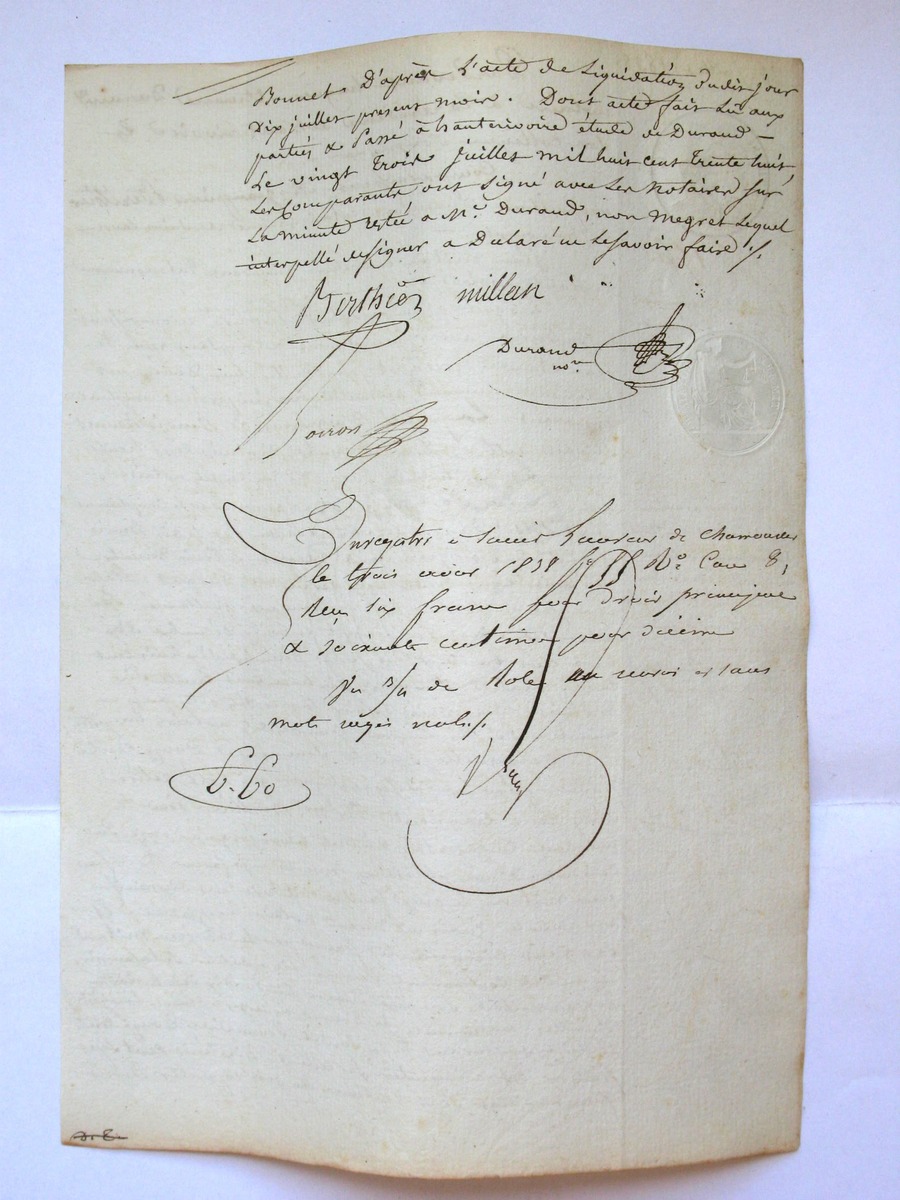 Bonnet D'après L'acte de Liquidation dudit jour
Dix juillet present mois. Dont acte fait Lu aux
parties & Passé à hauterivoire étude de Durand —
Le vingt Trois juillet mil huit cent trente huit
Les Comparants ont signé avec Les notaires sur
La minute restée a Me. Durand, non Megret Lequel
interpellé designer a Declaré ne Le savoir faire ./.
Berthier millan
Durand
nore
Enregistré à Saint de
le trois 1838 fo Ro Case 8,
Reçu six francs pour droit principal
& soixante centimes pour décime
de Role
mots rayés nuls./.
6.60